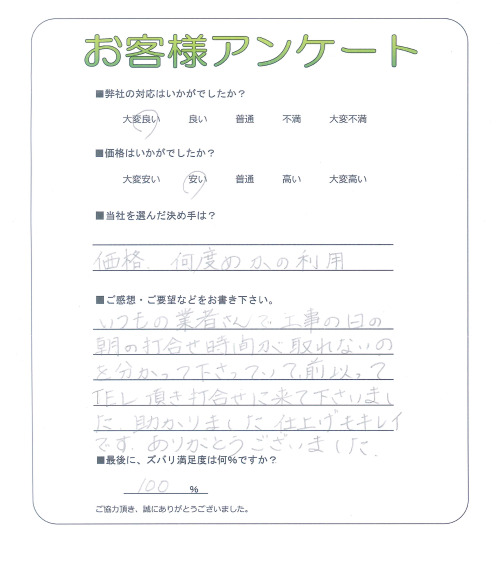 お客様アンケート
■弊社の対応はいかがでしたか？
大変良い 良い 普通 不満 大変不満
■価格はいかがでしたか？
大変安い 安い 普通 高い 大変高い
■当社を選んだ決め手は？
価格、何度めかの利用
■ご感想・ご要望などをお書き下さい。
いつもの業者さんで工事の日の
朝の打合せ時間が取れないの
を分かって下さっていて、前以って
TEL頂き打合せに来て下さいまし
た 助かりました 仕上げもキレイ
です。ありがとうございました。
■最後に、ズバリ満足度は何%ですか？
100 %
ご協力頂き、誠にありがとうございました。